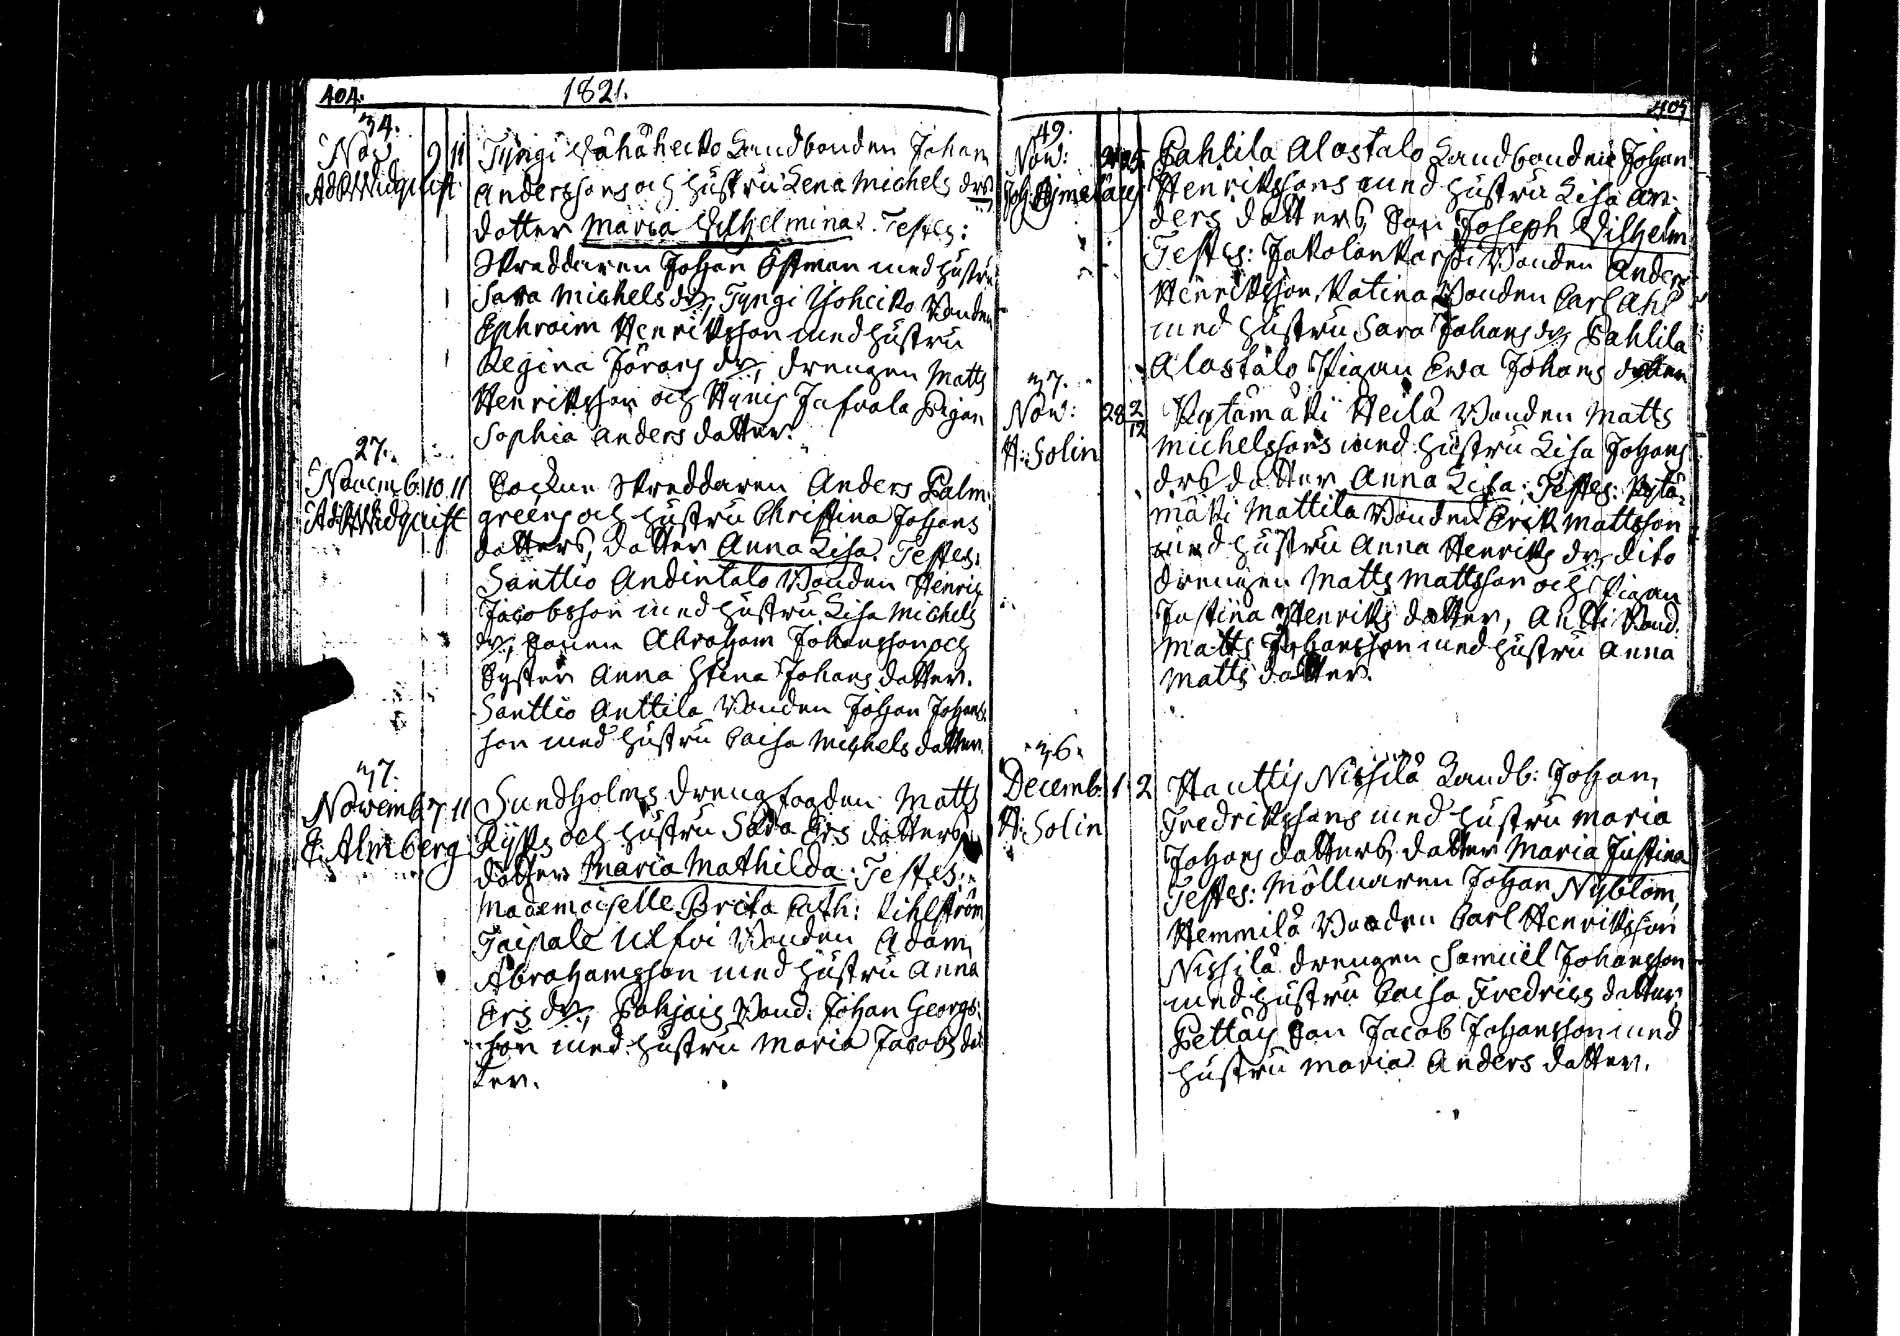 404.
1821.
34.
Nov: 9 11
Ad. Widquist
Tyngi Vähäheiko Landbonden Johan
Anderssons och hustru Lena Michels drs
dotter Maria Wilhelmina. Testes:
Skreddaren Johan Östman med hustru
Sara Michels dr, Tyngi Yliheiko Bonden
Ephraim Henriksson med hustru
Regina Jörans dr, drengen Matts
Henriksson och Hynis Jafvala Pigan
Sophia Anders dotter.
27.
Novemb: 10 11
Ad. Widquist
Sockne Skreddaren Anders Palm
greens och hustru Christina Johans
dotters, dotter Anna Lisa. Testes:
Santtio Andintalo Bonden Henric
Jacobsson med hustru Lisa Michels
dr, Sonen Abraham Johansson och
Syster Anna Stina Johans dotter.
Santtio Anttila Bonden Johan Johans
son med hustru Caisa Michels dotter.
37.
Novemb 7 11
E. Almberg
Sundholms drengfogden Matts
Ryss och hustru Ers dotters
dotter Maria Mathilda. Testes:
Mademoiselle Brita Cath: Kihlström
Taipale Ulfvi Bonden Adam
Abrahamsson med hustru Anna
Ers dr, Pohjois Bond. Johan Georgs
son med hustru Maria Jacobs dot
ter.
405
49.
Nov: 25
Pahlila Alastalo Landbonden Johan
Henrikssons med hustru Lisa An-
ders dotters, Son Joseph Wilhelm
Testes: Bonden Anders
Henriksson, Katina Bonden Carl Ahl
med hustru Sara Johans dr, Pahlila
Alastalo Pigan Eva Johans dotter
37.
Nov: 28 2/12
H: Solin
Pytämäki Heilä Bonden Matts
Michelssons med hustru Lisa Johans
drs dotter Anna Lisa. Testes: Pytä-
mäki Mattila Bonden Erik Mattsson
med hustru Anna Henriks dr, dito
drengen Matts Mattsson och Pigan
Justina Henriks dotter, Antti Bond:
Matts Johansson med hustru Anna
Matts dotter.
36
Decemb: 1 2
H: Solin
Hauttis Nissilä Landb: Johan
Fredrikssons med hustru Maria
Johans dotters, dotter Maria Justina
Testes: Möllnaren Johan Nyblom,
Hemmilä Bonden Carl Henriksson
Nissilä drengen Samuel Johansson
med hustru Caisa Fredrics dotter,
Pettäys Son Jacob Johansson med
hustru Maria Anders dotter.